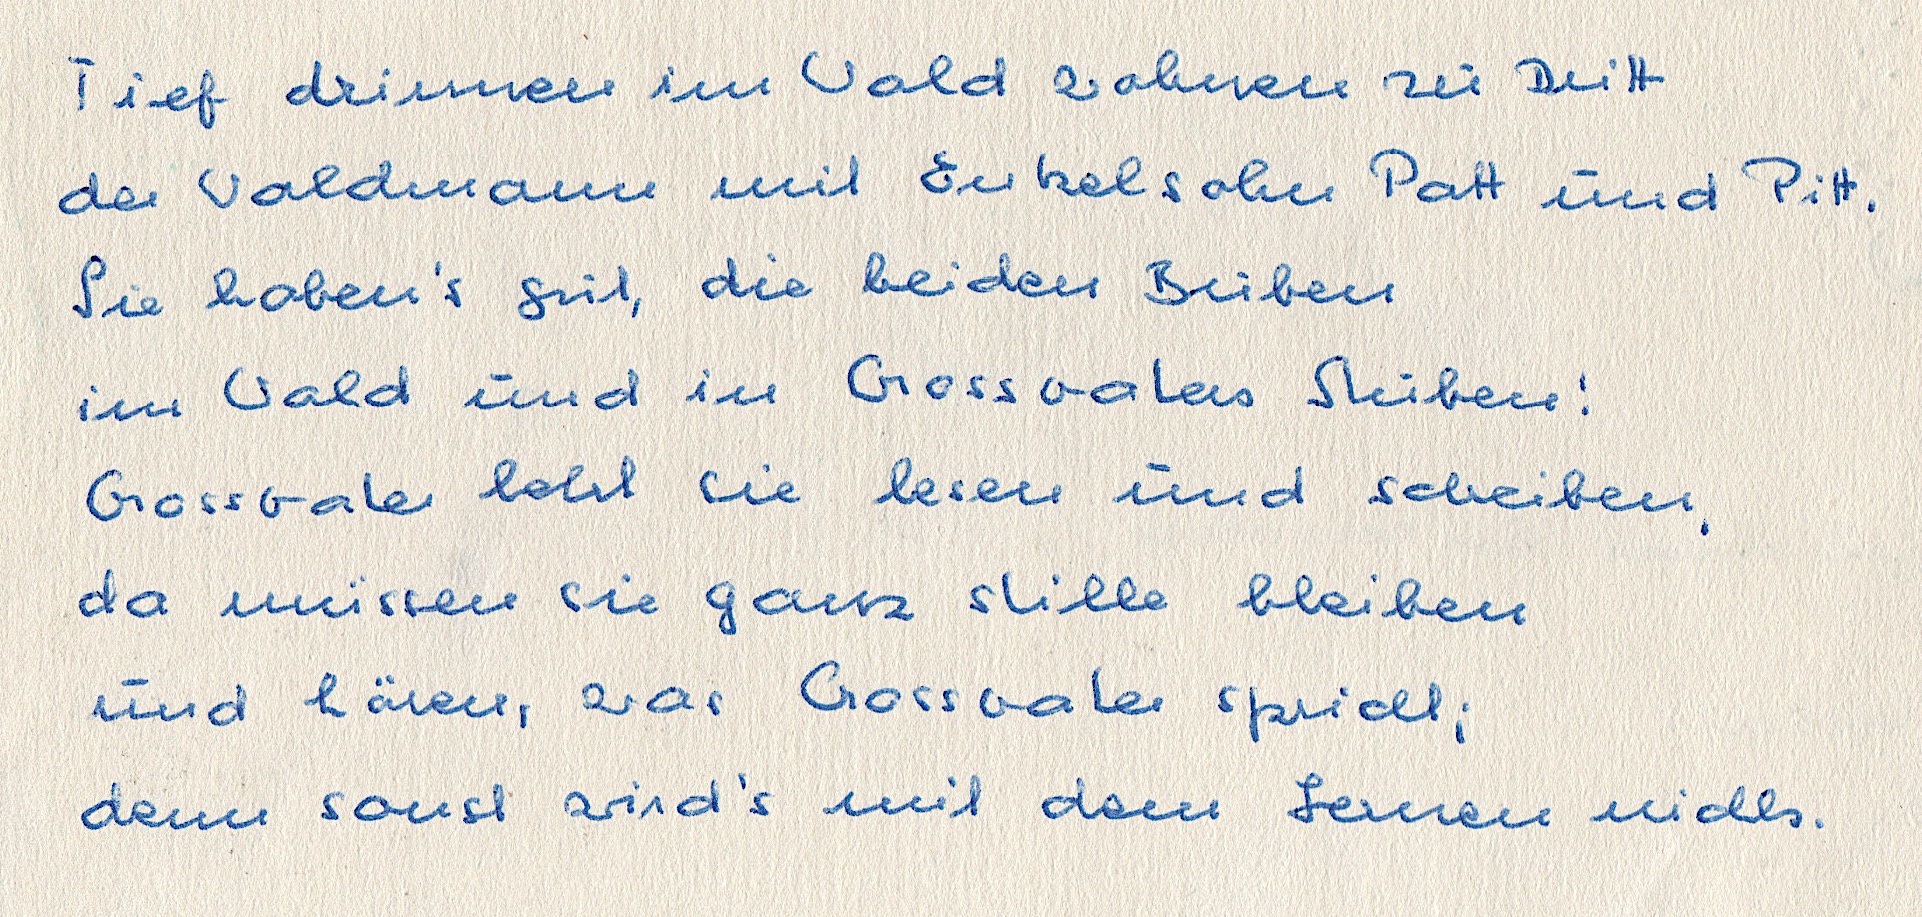 Tief drinnen im Wald wohnen zu Dritt
der Waldmann mit Enkelsohn Patt und Pitt.
Sie haben's gut, die beiden Buben
im Wald und in Grossvaters Stuben!
Grossvater lehrt sie lesen und schreiben,
da müssen sie ganz stille bleiben
und hören, was Grossvater spricht;
denn sonst wird's mit dem Lernen nichts.